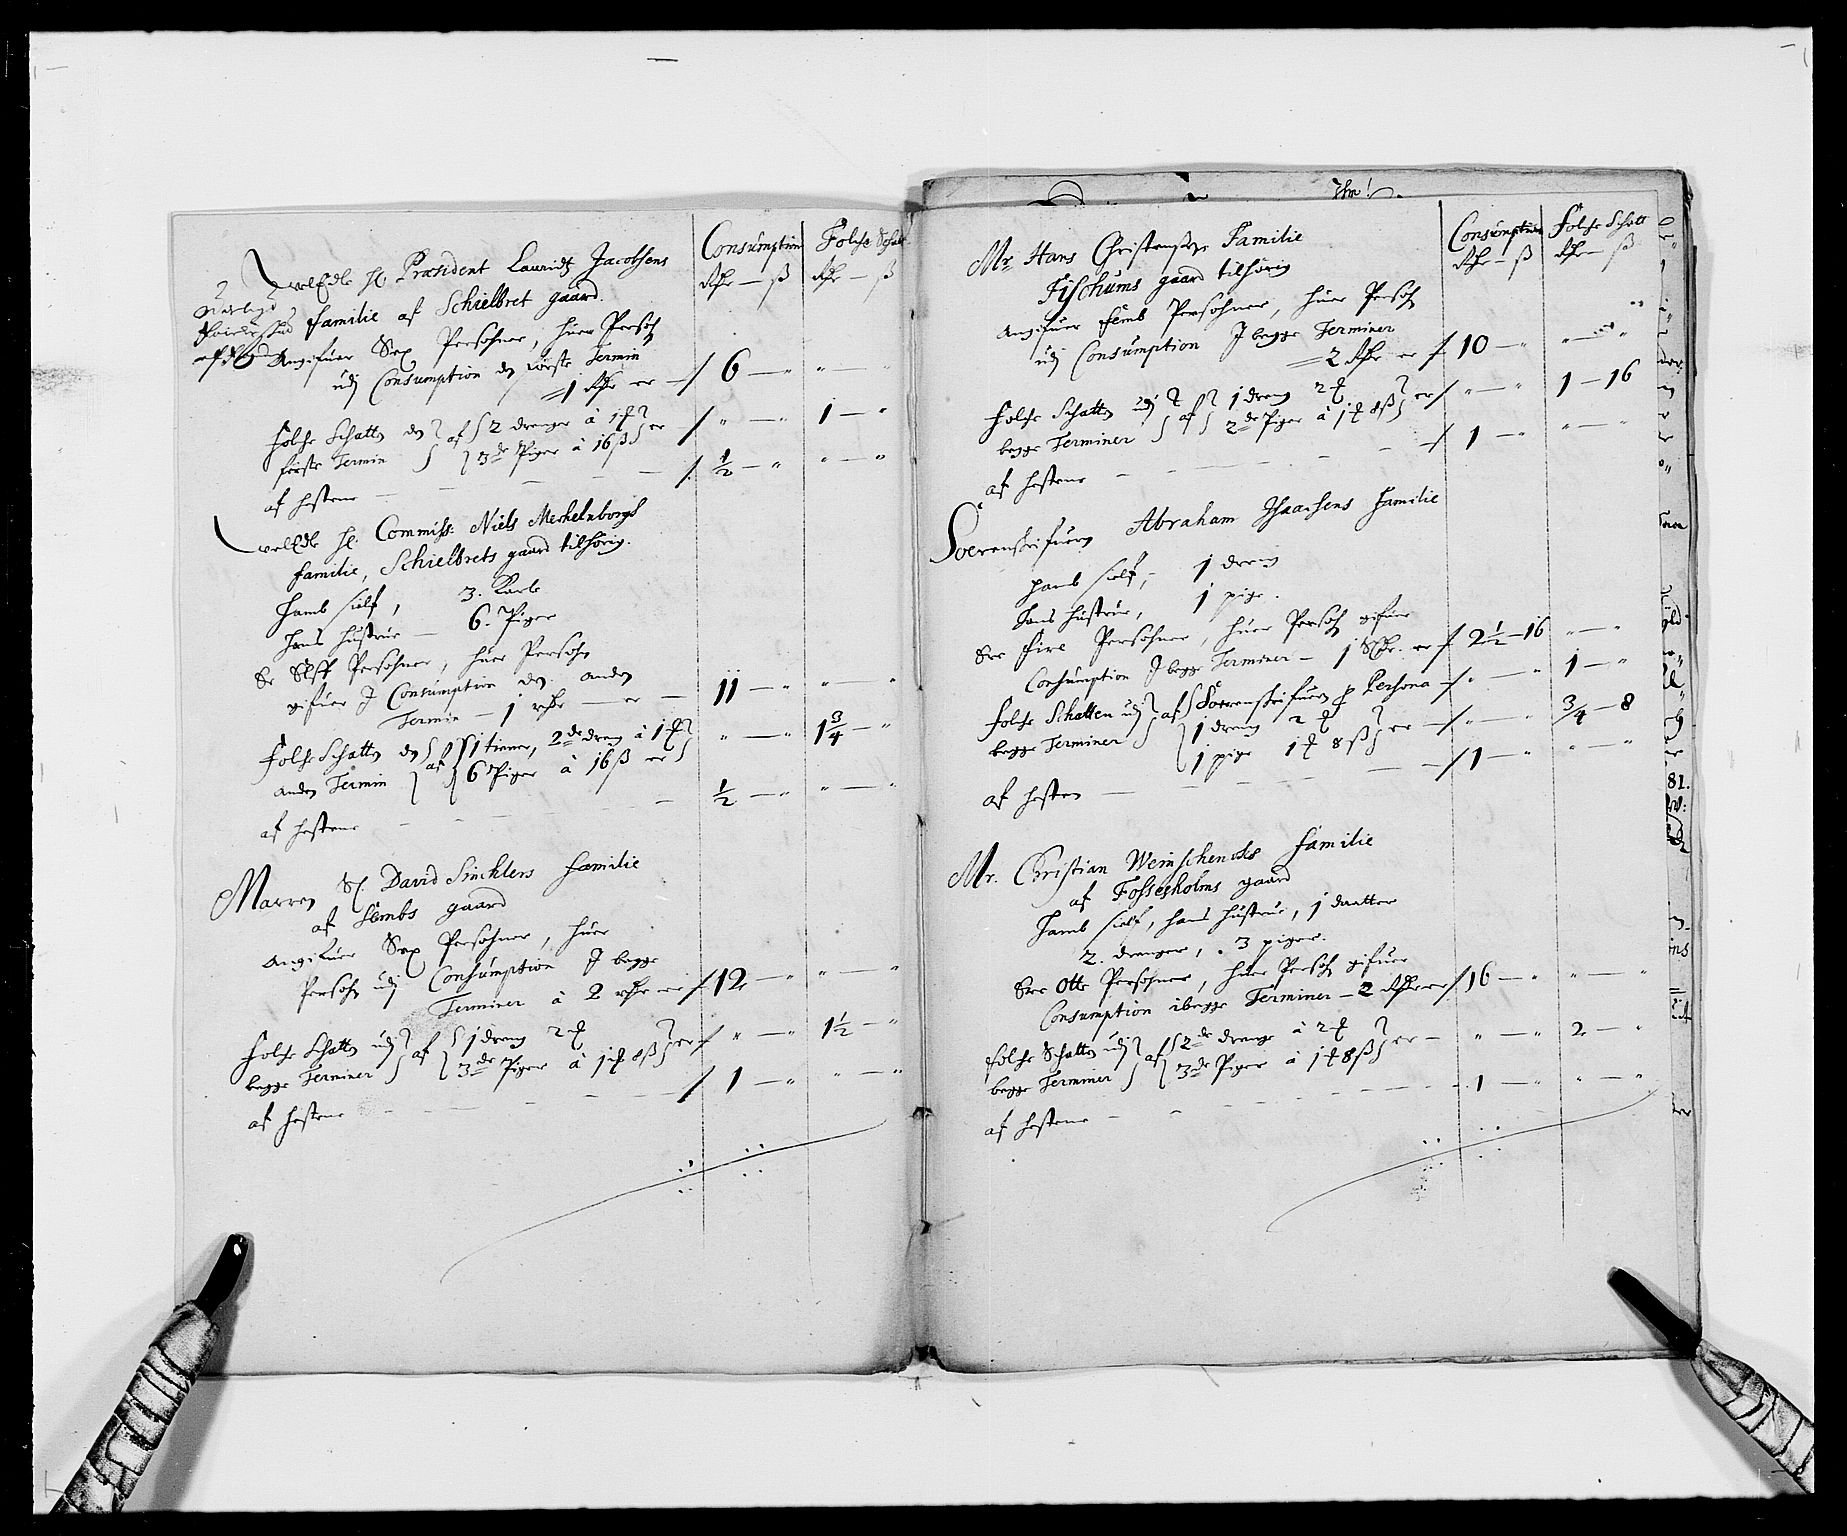 Consumption
Folche Schatt
Rdr — ß
Rdr — ß
WelEdle Hr Præsident Lauridtz Jacobsens
familie af Schielbret gaard.
Angifuer Sex Persohner, huer Persohn
udj Consumption den første Termin
1 Rdr er — 6 — "   " — "
Folche Schatten den første Termin af 2 drenge à 1 ₰ 3de Piger à 16 ß er   " — "   1 — "
af hestene — ½ — "   " — "
WelEdle Hr. Commiss: Niels Mechelnborgs
familie, Schielbrets gaard tilhørig.
Hamb sielf, 3. Karle
hans hustrue — 6. Piger
Er Elfve Persohner, huer Persohn
gifuer J Consumption den anden
Termin — 1 rdr — er — 11 — "   " — "
Folche Schatten den anden Termin af 1 tiener, 2de dreng à 1 ₰ 6 Piger à 16 ß er   " — "   1¾ — "
af hestene — ½ — "   " — "
Marren Sl. David Sincklers familie
af Sembs gaard
Angifuer Sex Persohner, huer
Persohn udj Consumption J begge
Terminer à 2 rdr er 12 — "   " — "
Folche Schatten udj begge Terminer af 1 dreng 2 ₰ 3de Piger à 1 ₰ 8 ß er   " — "   1½ — "
af hestene — 1 — "   " — "
Consumption
Folche Schatt
Rdr — ß
Rdr — ß
Mr Hans Christensøns Familie
Fischums gaard tilhørig
Angifuer femb Persohner, huer Persohn
udj Consumption J begge Terminer
2 Rdr er 10 — "   " — "
Folche Schatten udj begge Terminer af 1 dreng 2 ₰ 2de Piger à 1 ₰ 8 ß er   " — "   1 — 16
af hestene — 1 — "   " — "
Soerenskrifueren Abraham Isaachsens familie
hamb sielf, 1 dreng
hans hustrue, 1 pige.
Ere fire Persohner, huer Persohn gifuer
Consumption J begge Terminer — 1 er 2½ — 16   " — "
Folche Schatten udj begge Terminer af Soerenskrifueren Persona   " — "   1 — "
1 dreng 2 ₰ 1 pige 1 ₰ 8 ß er   " — "   ¾ — 8
af hesten — 1 — "   " — "
Mr. Christian Weinschencks familie
af Fossesholms gaard
Hamb sielf, hans hustrue, 1 daatter
2. drenger, 3 piger.
Ere Otte Persohner, huer Persohn gifuer
Consumption ibegge Terminer — 2 Rdr er 16 — "   " — "
Folche Schatten udj begge Terminer af 2de drenge à 2 ₰ 3de Piger à 1 ₰ 8 ß er   " — "   2 — "
af hestene — 1 — "   " — "